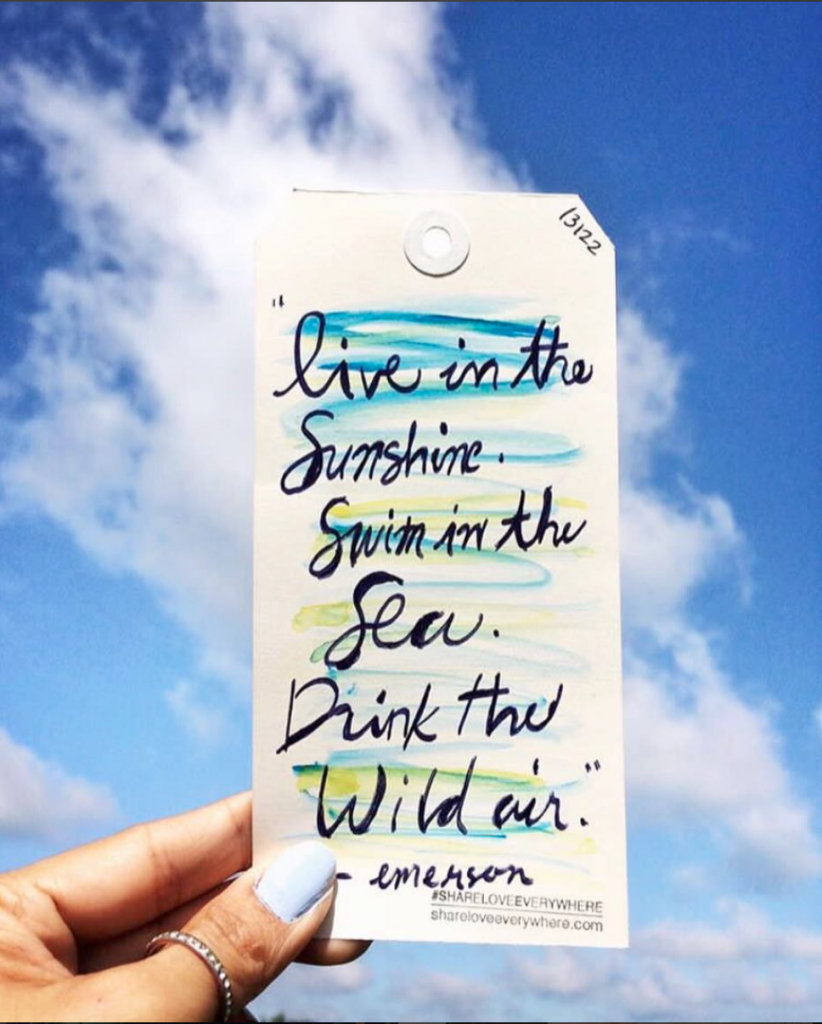 13122
"live in the
Sunshine.
Swim in the
Sea.
Drink the
Wild air."
- emerson
#SHARELOVEEVERYWHERE
shareloveeverywhere.com